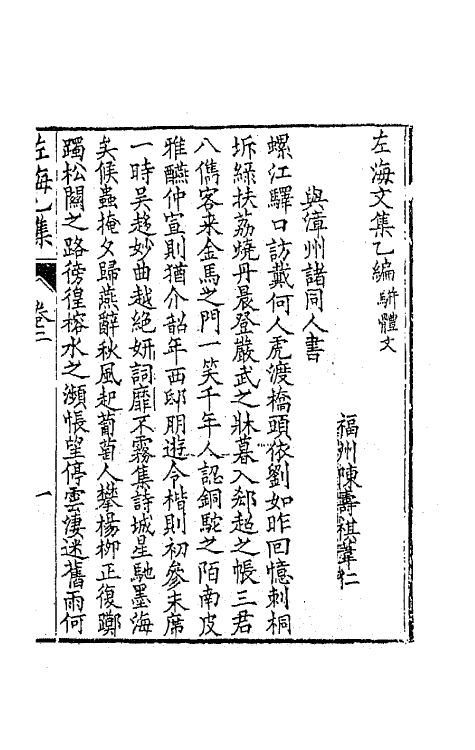 左海文集乙編 駢體文
福州陳壽祺葦仁
與漳州諸同人書
螺江驛口訪戴何人虎渡橋頭依劉如昨回憶刺桐
坼綠扶荔燒丹晨登嚴武之牀暮入郄超之帳三君
八儁客来金馬之門一笑千年人認銅駝之陌南皮
雅醼仲宣則猶介韶年西邸朋遊令楷則初參末席
一時吳趍妙曲越絕妍詞靡不霧集詩城星馳墨海
矣候蟲掩夕歸燕辭秋風起葡萄人攀楊柳正復躑
躅松關之路徬徨榕水之瀕悵望停雲淒迷舊雨何
左海乙集
卷二
一